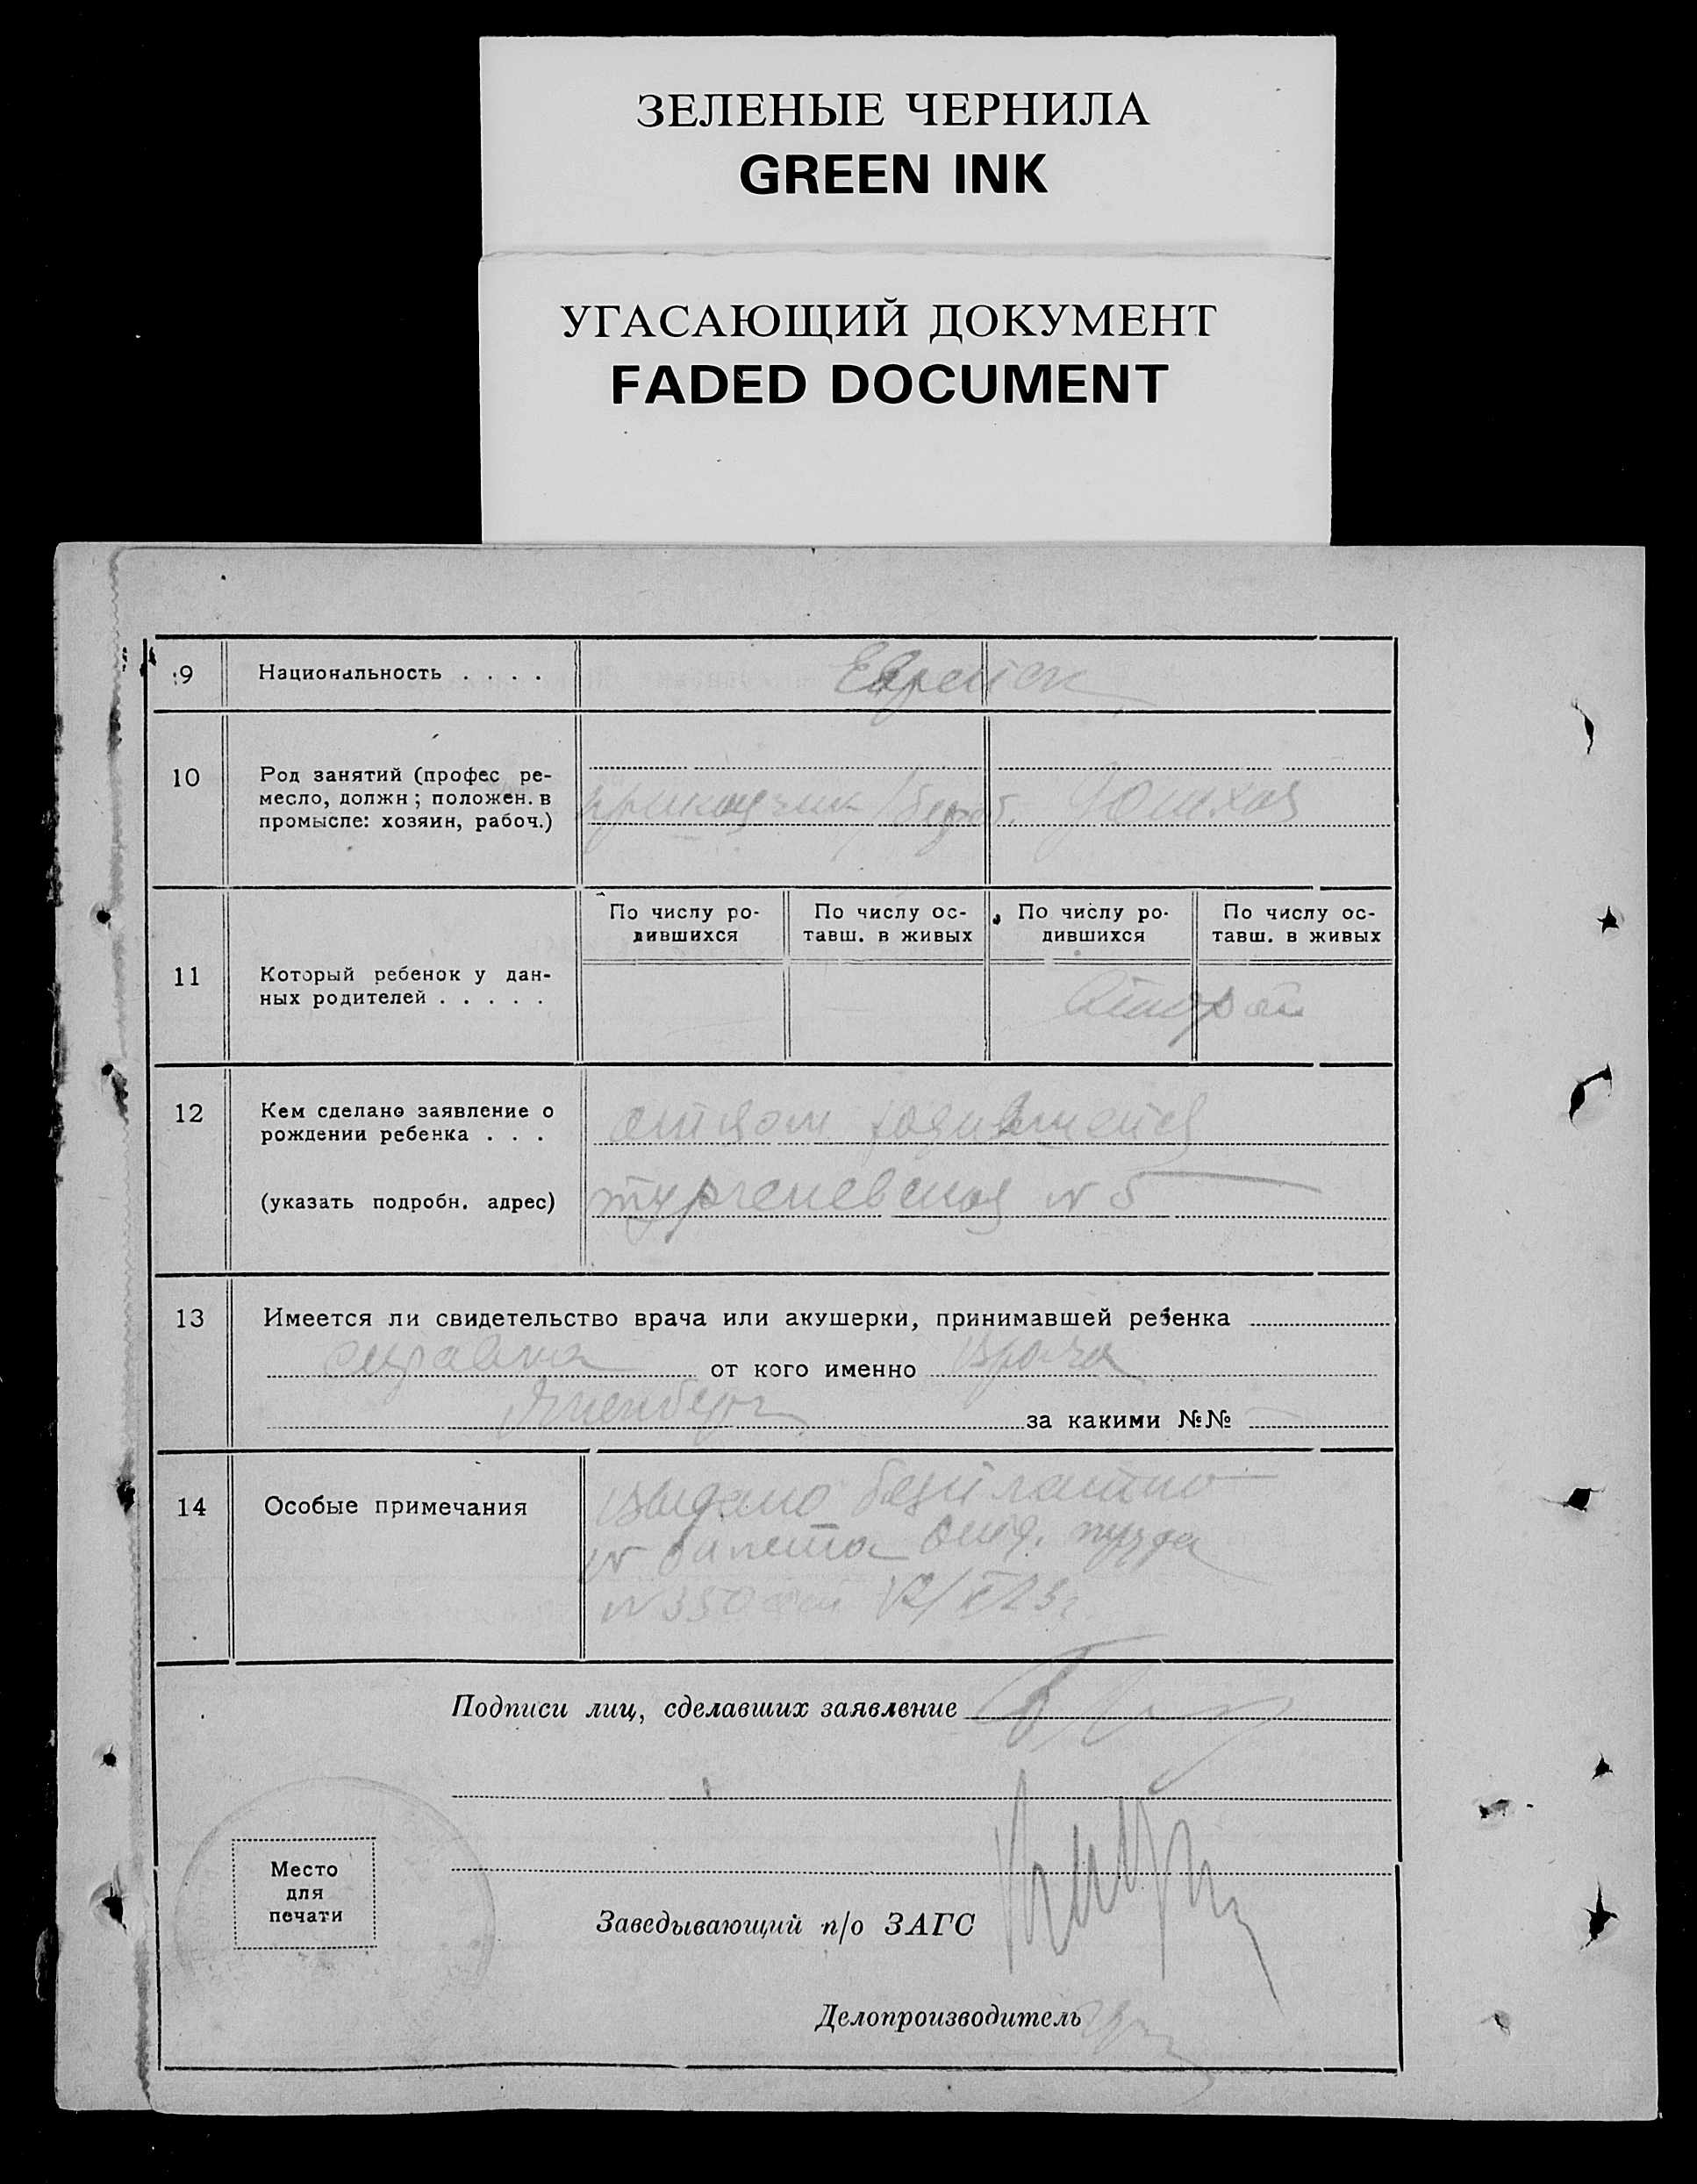 ЗЕЛЕНЫЕ ЧЕРНИЛА
GREEN INK
УГАСАЮЩИЙ ДОКУМЕНТ
FADED DOCUMENT
9 Национальность . . . . Еврейск
10 Род занятий (професс ре-
месло, должн; положен. в
промысле: хозяин, рабоч.)
приказчик /безраб. Дом.хоз
По числу ро-
дившихся
По числу ос-
тавш. в живых
По числу ро-
дившихся
По числу ос-
тавш. в живых
11 Который ребенок у дан-
ных родителей . . . . .
Второй
12 Кем сделано заявление о
рождении ребенка . . .
отцом
(указать подробн. адрес) тургеневская N 5
13 Имеется ли свидетельство врача или акушерки, принимавшей ребенка
справка от кого именно врача
за какими №№
14 Особые примечания
Выдано бесплатно
N билета
N 350 от
Подписи лиц, сделавших заявление
Место
для
печати
Заведывающий п/о ЗАГС
Делопроизводитель